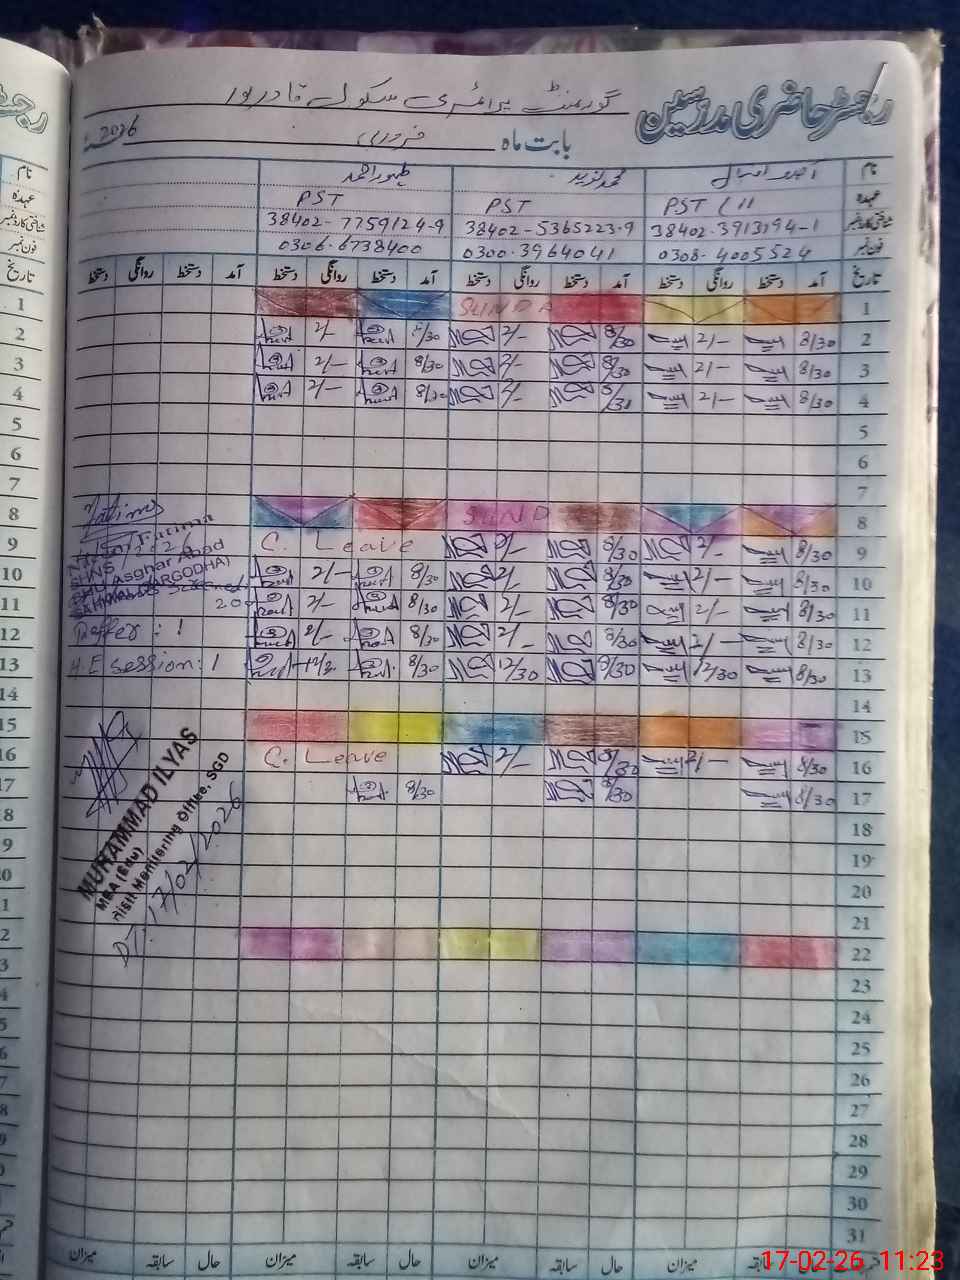 رجسٹر حاضری مدرسین
گورنمنٹ پرائمری سکول قادر پور
بابت ماہ فروری 2026ء
نام محمد نوید ظہور احمد
عہدہ PST PST PST
شناختی کارڈ نمبر 38402-3913194-1 38402-5365223-9 38402-7759124-9
فون نمبر 0308-4005524 0300-3964041 0306-6738400
تاریخ آمد دستخط روانگی دستخط آمد دستخط روانگی دستخط آمد دستخط روانگی دستخط آمد دستخط روانگی دستخط
1 SUNDA
2 8/30 2/- 8/30 2/- 8/30 2/-
3 8/30 2/- 8/30 2/- 8/30 2/-
4 8/30 2/- 8/30 2/- 8/30 2/-
5
6
7
8 SUND
9 8/30 2/- 8/30 2/- C. Leave
10 8/30 2/- 8/30 2/- 8/30 2/-
11 8/30 2/- 8/30 2/- 8/30 2/-
12 8/30 2/- 8/30 2/- 8/30 2/-
13 8/30 12/30 8/30 12/30 8/30
14
15
16 8/30 2/- 8/30 2/- C. Leave
17 8/30 8/30 8/30
18
19
20
21
22
23
24
25
26
27
28
29
30
31
Fatima
SHNS
Asghar Abad
SARGODHA)
Reffer: 1
H.E session: 1
MUHAMMAD ILYAS
MBA (Edu)
Visit Monitering Office, SGD
DT: 17/02/2026
حال سابقہ میزان حال سابقہ میزان حال سابقہ میزان
17-02-26 11:23